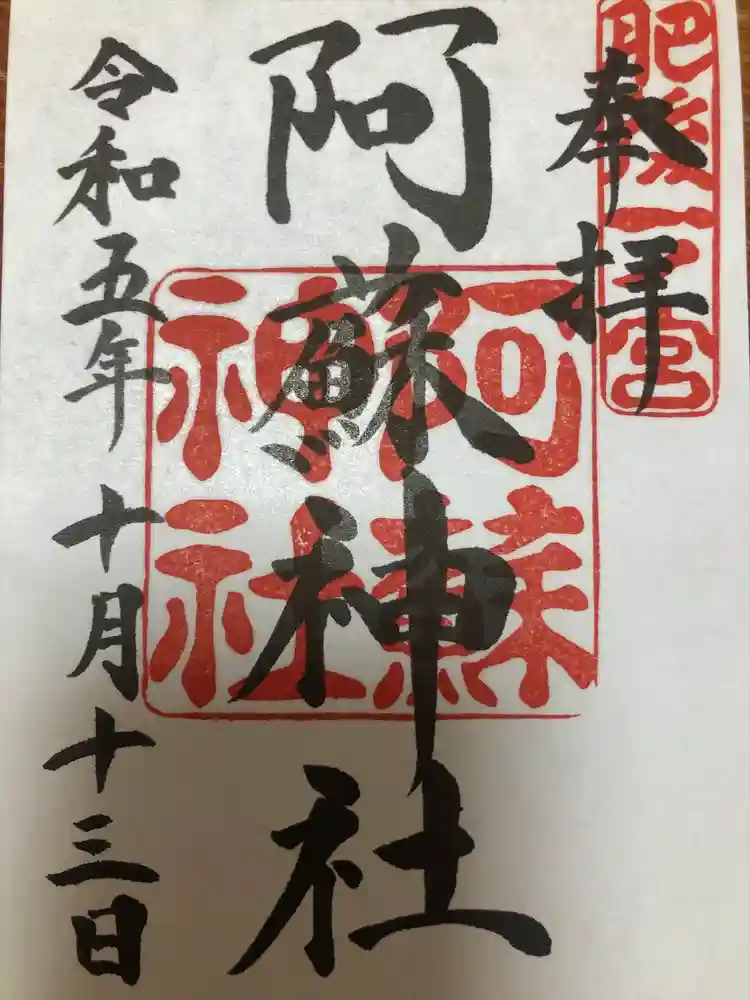 奉拝
肥後一之宮
阿蘇神社
阿蘇
神社
令和五年十月十三日